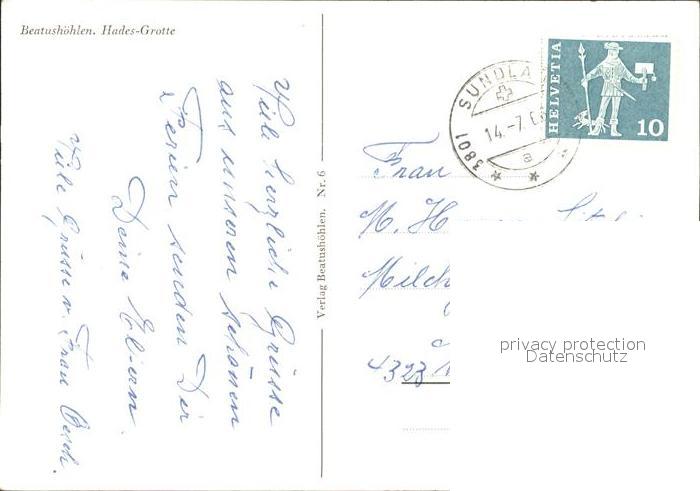 Beatushöhlen. Hades-Grotte
Viele herzliche Grüsse
aus unseren schönen
Ferien senden Dir
Deine Eltern.
Viele Grüsse v. Frau
Verlag Beatushöhlen. Nr. 6
3801 SUNDLA
14.-7.
a
HELVETIA
10
Frau
M. H
Milch
4323
privacy protection
Datenschutz